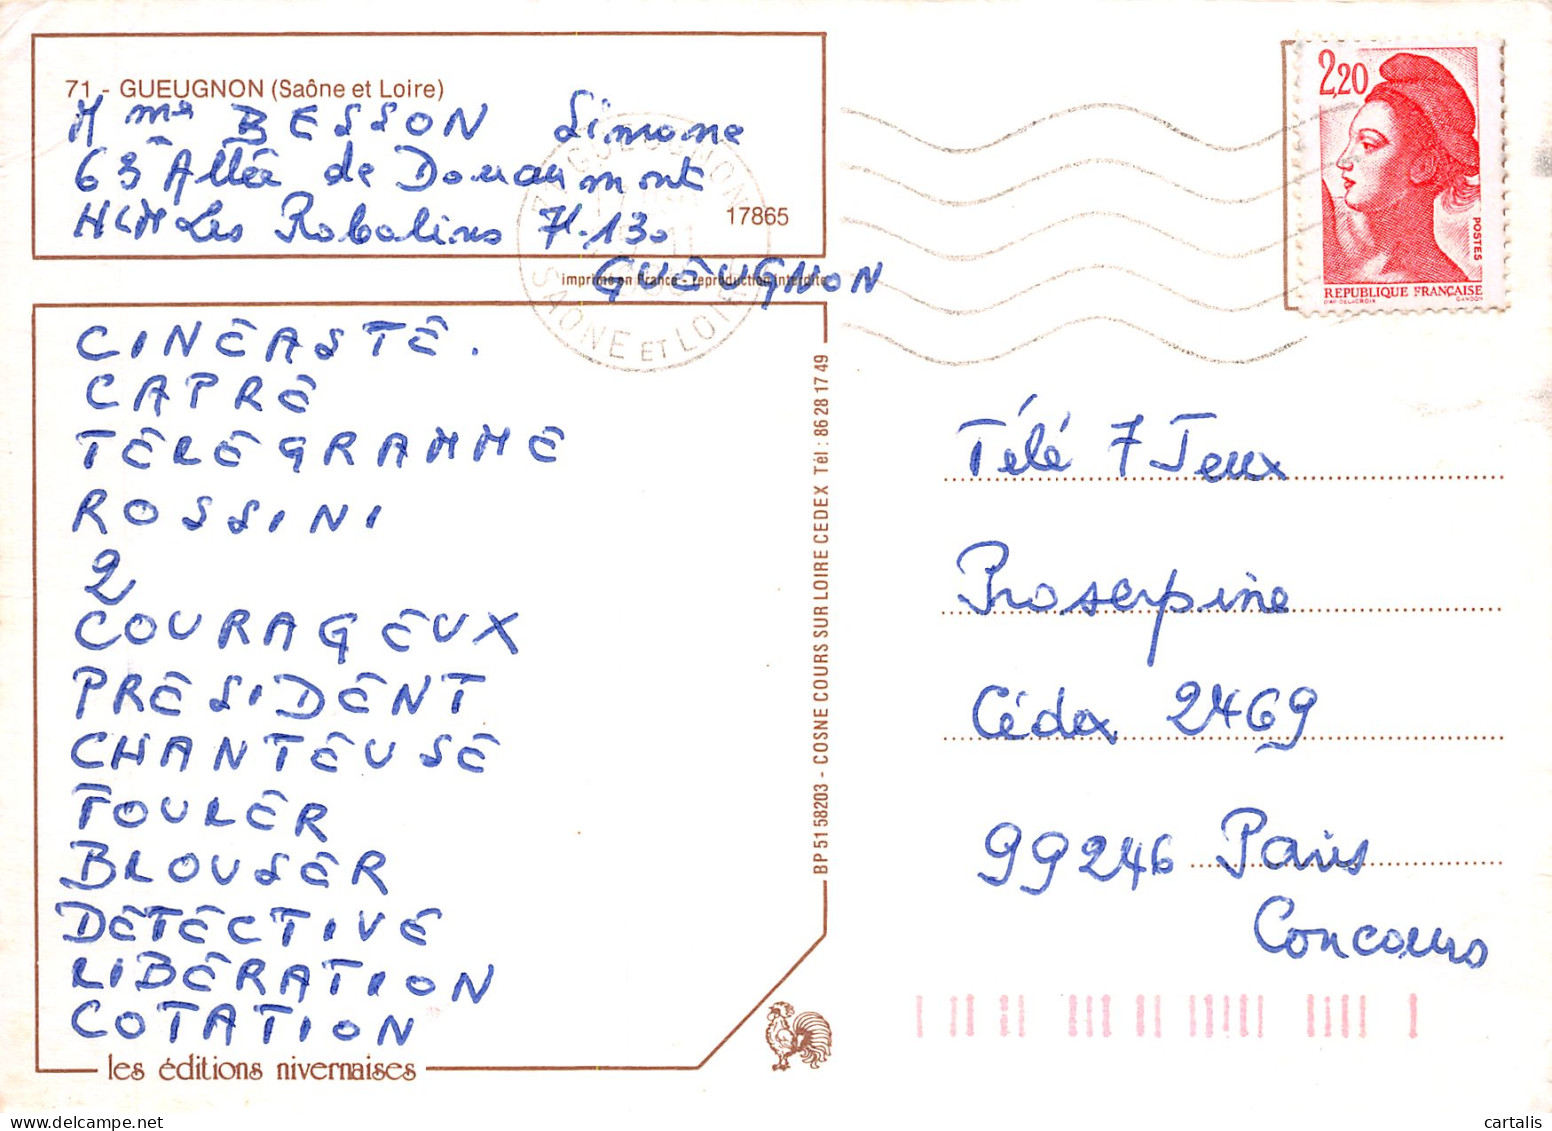 71 - GUEUGNON (Saône et Loire)
Mme BESSON Simone
63 Allée de Douaumont
HLM Les Robalins 71.130
GUEUGNON
17865
imprimé en France - reproduction interdite
GUEUGNON
SAONE ET LOIRE
2,20
POSTES
REPUBLIQUE FRANÇAISE
D'AP. DELACROIX GANDON
CINÉASTE.
CAPRE
TÉLÉGRAMME
ROSSINI
2
COURAGEUX
PRESIDENT
CHANTEUSE
FOULER
BLOUSER
DETECTIVE
LIBERATION
COTATION
les éditions nivernaises
BP 51 58203 - COSNE COURS SUR LOIRE CEDEX Tél : 86 28 17 49
Télé 7 Jeux
Proserpine
Cédex 2469
99246 Paris
Concours
cartalis